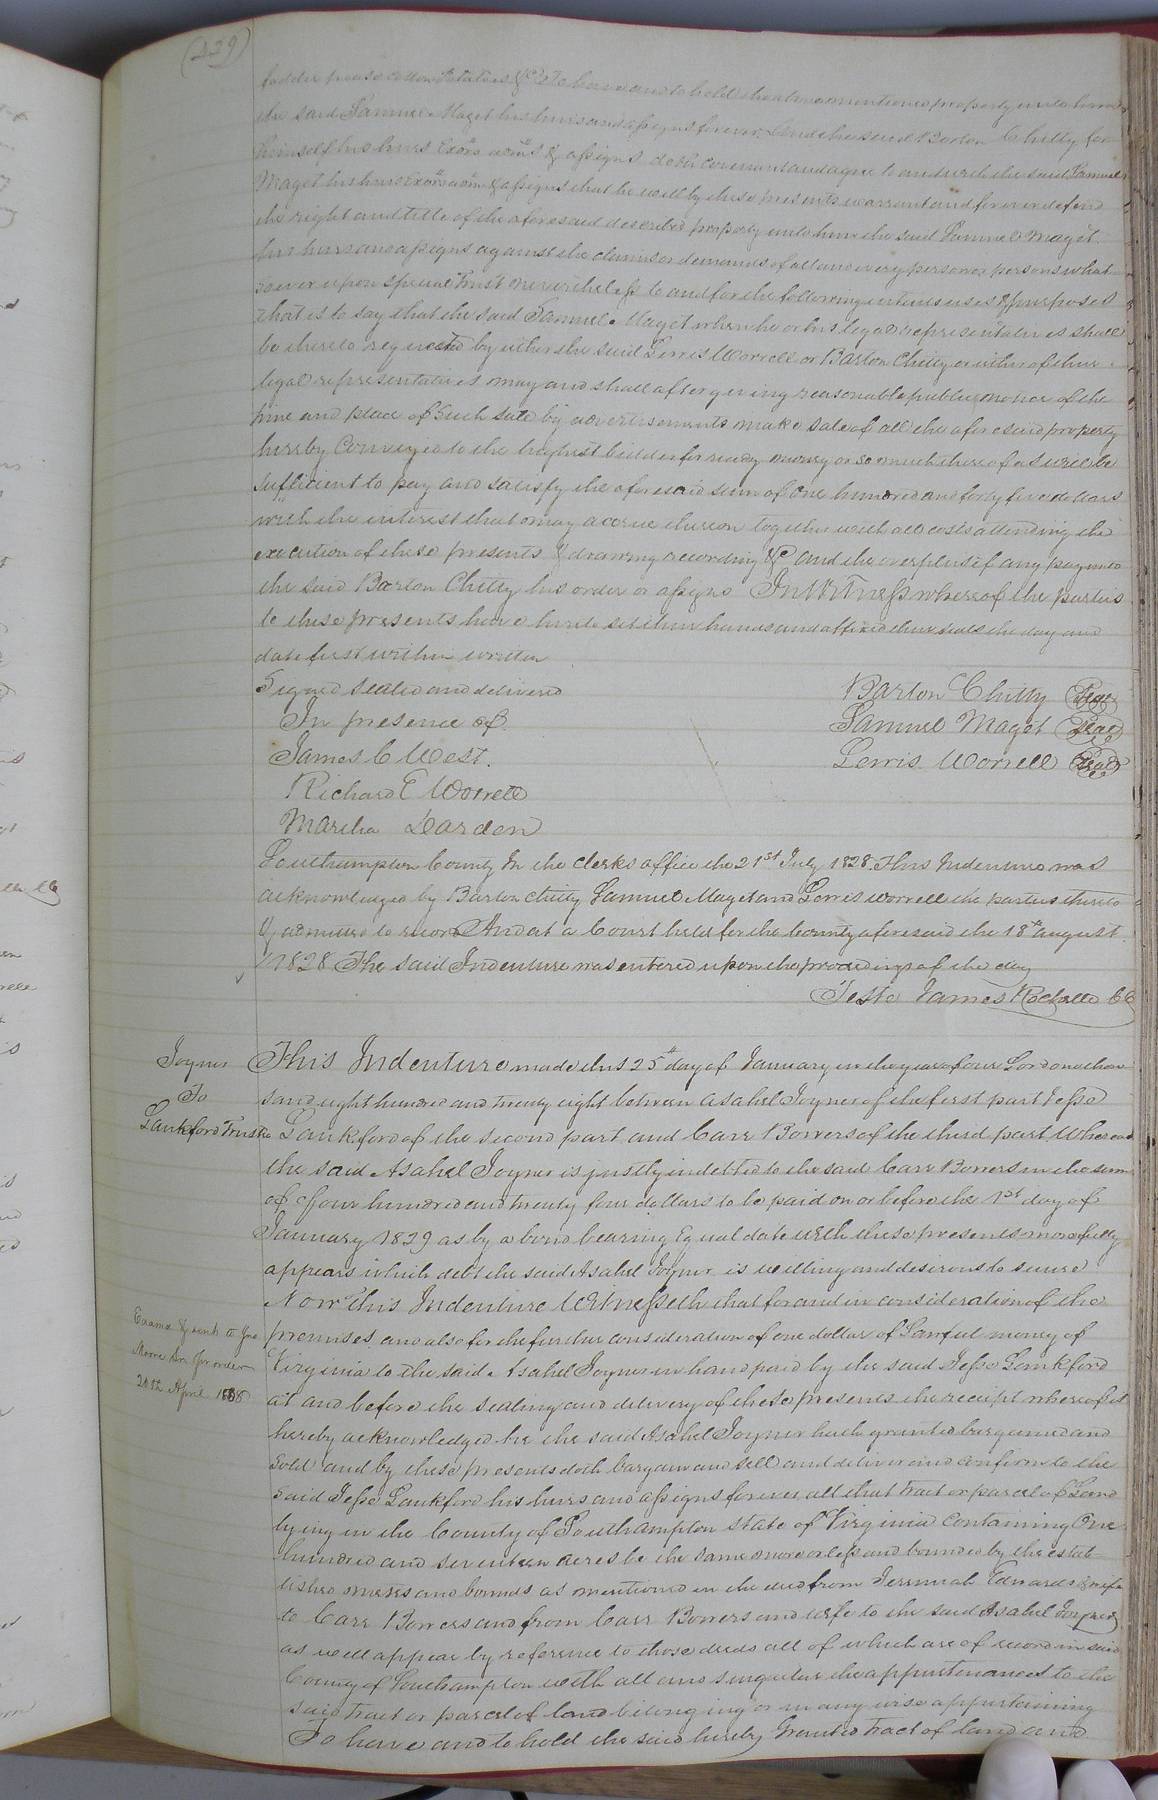 (229)
fodder pease cotton Potatoes &c To have and to hold the above mentioned property unto him
the said Samuel Maget his heirs and assigns forever. And the said Barton Chitty for
himself his heirs Exors admrs & assigns doth covenant and agree to and with the said Samuel
Maget his heirs Exors admrs & assigns that he will by these presents warrant and forever defend
the right and title of the aforesaid described property unto him the said Samuel Maget
his heirs and assigns against the claims or demands of all and every person or persons what-
soever upon special Trust nevertheless to and for the following intents uses & purposes
that is to say that the said Samuel Maget when he or his legal representatives shall
be thereto requested by either the said Lewis Worrell or Barton Chitty or either of their
legal representatives may and shall after giving reasonable public notice of the
time and place of such sale by advertisements make sale of all the aforesaid property
hereby Conveyed to the highest bidder for ready money or so much thereof as will be
sufficient to pay and satisfy the aforesaid sum of one hundred and forty five dollars
with the interest that may accrue thereon together with all costs attending the
execution of these presents & drawing recording &c and the overplus if any pay unto
the said Barton Chitty his order or assigns In Witness whereof the parties
to these presents have hereto set their hands and affixed their seals the day and
date first within written
Signed sealed and delivered Barton Chitty Seal
In presence of Samuel Maget Seal
James C West. Lewis Worrell Seal
Richard E Worrell
Martha Darden
Southampton County In the Clerks office the 21st July 1828. This Indenture was
acknowledged by Barton Chitty Samuel Maget and Lewis Worrell the parties thereto
& admitted to record And at a Court held for the County aforesaid the 18th August
1828 The said Indenture was entered upon the proceedings of the day
Teste James Rochelle CC
Joyner
To
Lankford Trustee
This Indenture made this 25th day of January in the year of our Lord one thou-
sand eight hundred and twenty eight between Asahel Joyner of the first part Jesse
Lankford of the second part and Carr Bowers of the third part Whereas
the said Asahel Joyner is justly indebted to the said Carr Bowers in the sum
of four hundred and twenty four dollars to be paid on or before the 1st day of
January 1829 as by a bond bearing Equal date with these presents more fully
appears which debt the said Asahel Joyner is willing and desirous to secure
Now This Indenture Witnesseth that for and in consideration of the
Examd & sent to
Moore
20th April 1838
premises and also for the further consideration of one dollar of Lawful money of
Virginia to the said Asahel Joyner in hand paid by the said Jesse Lankford
at and before the sealing and delivery of these presents the receipt whereof is
hereby acknowledged he the said Asahel Joyner hath granted bargained and
Sold and by these presents doth bargain and sell and deliver and confirm to the
said Jesse Lankford his heirs and assigns forever all that tract or parcel of Land
lying in the County of Southampton state of Virginia containing One
hundred and seventeen acres be the same more or less and bounded by the estab-
lished metes and bounds as mentioned in the deed from Jeremiah Edwards & wife
to Carr Bowers and from Carr Bowers and wife to the said Asahel Joyner
as will appear by reference to those deeds all of which are of record in said
County of Southampton with all and singular the appurtenances to the
said tract or parcel of land belonging or in any wise appertaining
To have and to hold the said hereby Granted tract of land and